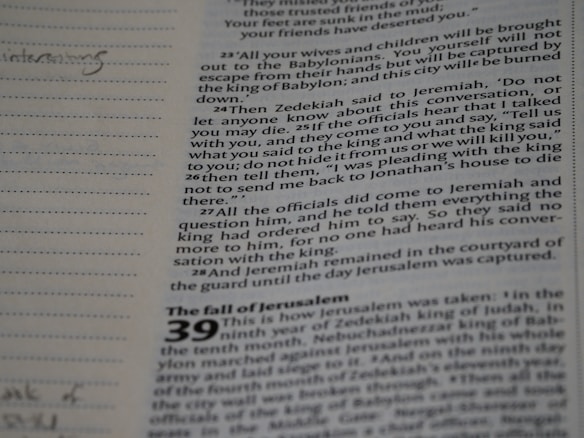 "They misled you
those trusted friends of you
Your feet are sunk in the mud;
your friends have deserted you."
23 'All your wives and children will be brought
out to the Babylonians. You yourself will not
escape from their hands but will be captured by
the king of Babylon; and this city will be burned
down.'
24 Then Zedekiah said to Jeremiah, 'Do not
let anyone know about this conversation, or
you may die. 25 If the officials hear that I talked
with you, and they come to you and say, "Tell us
what you said to the king and what the king said
to you; do not hide it from us or we will kill you,"
26 then tell them, "I was pleading with the king
not to send me back to Jonathan's house to die
there." '
27 All the officials did come to Jeremiah and
question him, and he told them everything the
king had ordered him to say. So they said no
more to him, for no one had heard his conver-
sation with the king.
28 And Jeremiah remained in the courtyard of
the guard until the day Jerusalem was captured.
The fall of Jerusalem
39 This is how Jerusalem was taken: 1 in the
ninth year of Zedekiah king of Judah, in
the tenth month, Nebuchadnezzar king of Bab-
ylon marched against Jerusalem with his whole
army and laid siege to it. 2 And on the ninth day
of the fourth month of Zedekiah's eleventh year,
the city wall was broken through. 3 Then all the
officials of the king of Babylon came and took
seats in the Middle Gate: Nergal-Sharezer of
interesting
of